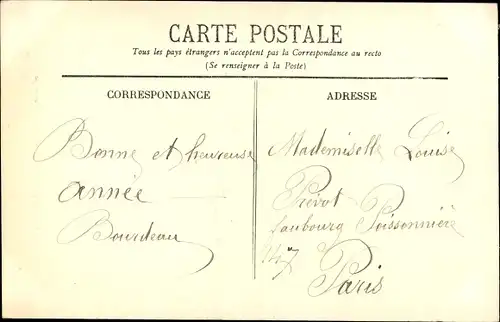 CARTE POSTALE
Tous les pays étrangers n'acceptent pas la Correspondance au recto
(Se renseigner à la Poste)
CORRESPONDANCE
Bonne et heureuse
année
Bourdeau
ADRESSE
Mademiselle Louise
Prévot
faubourg Poissonnière
147
Paris